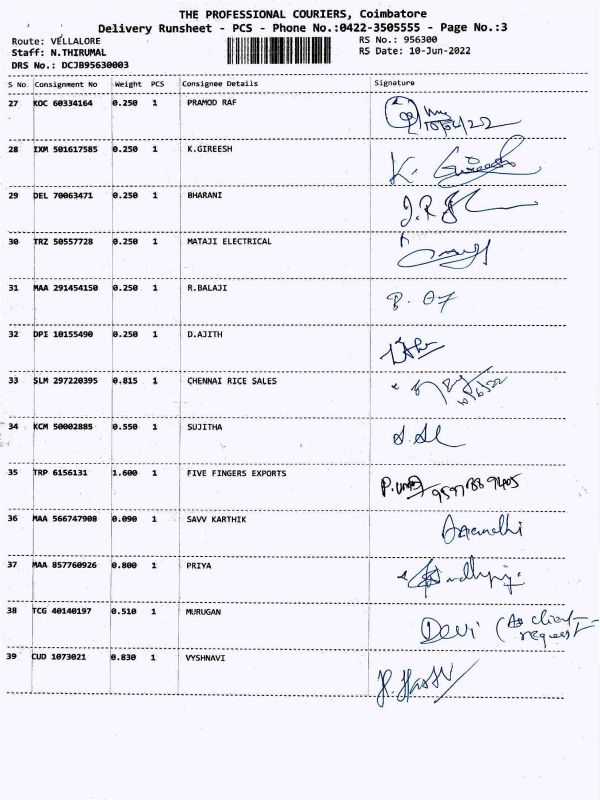 THE PROFESSIONAL COURIERS, Coimbatore
Delivery Runsheet - PCS - Phone No.:0422-3505555 - Page No.:3
Route: VELLALORE RS No.: 956300
Staff: N.THIRUMAL RS Date: 10-Jun-2022
DRS No.: DCJB95630003
S No Consignment No Weight PCS Consignee Details Signature
27 KOC 60334164 0.250 1 PRAMOD RAF
28 IXM 501617585 0.250 1 K.GIREESH K. Gireesh
29 DEL 70063471 0.250 1 BHARANI
30 TRZ 50557728 0.250 1 MATAJI ELECTRICAL
31 MAA 291454150 0.250 1 R.BALAJI
32 DPI 10155490 0.250 1 D.AJITH
33 SLM 297220395 0.815 1 CHENNAI RICE SALES
34 KCM 50002885 0.550 1 SUJITHA
35 TRP 6156131 1.600 1 FIVE FINGERS EXPORTS
36 MAA 566747908 0.090 1 SAVV KARTHIK
37 MAA 857760926 0.800 1 PRIYA
38 TCG 40140197 0.510 1 MURUGAN Devi (As client
request
39 CUD 1073021 0.830 1 VYSHNAVI